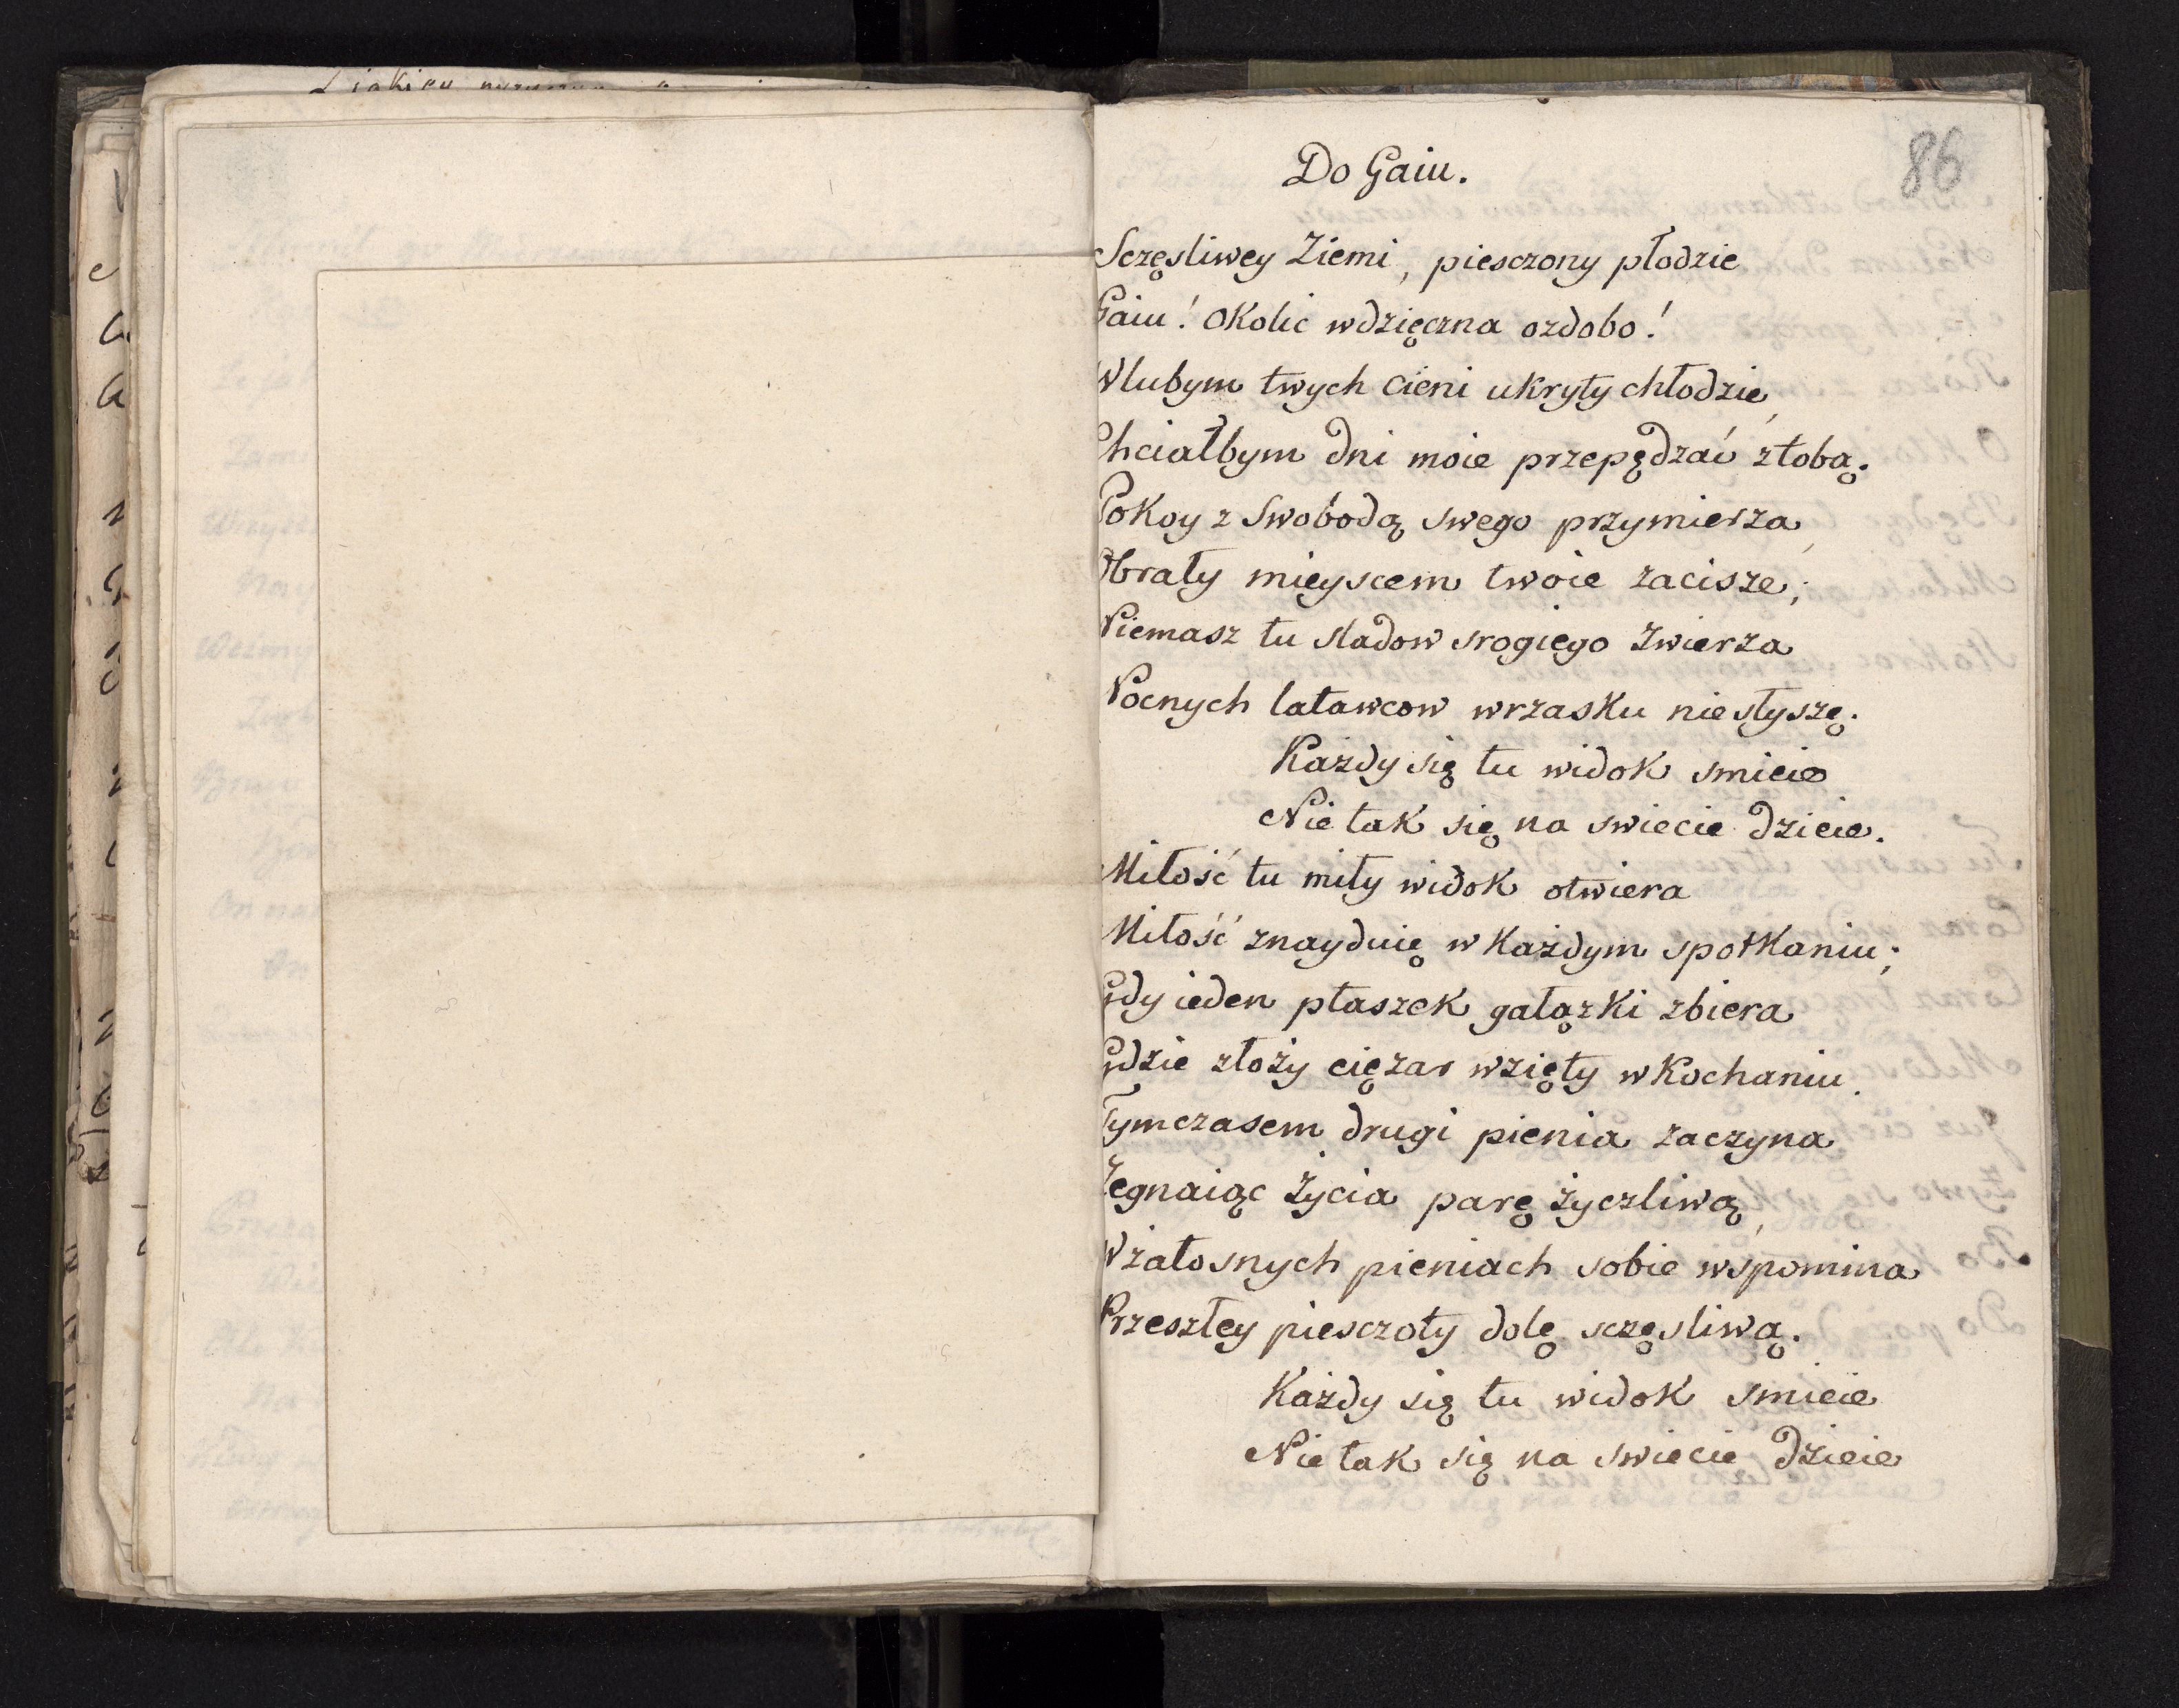 86
Do Gaiu.
Sczęsliwey Ziemi, piesczony płodzie
Gaiu! Okolic wdzięczna ozdobo!
Wlubym twych cieni ukryty chłodzie,
Chciałbym dni moie przepędzać ztobą.
Pokoy z Swobodą swego przymierza,
Obrały mieyscem twoie zacisze;
Niemasz tu sladow srogiego zwierza
Nocnych latawcow wrzasku niesłyszę.
Każdy się tu widok smieie
Nie tak się na swiecie dzieie.
Miłość tu miły widok otwiera
Miłość znayduię w każdym spotkaniu;
Gdy ieden ptaszek gałązki zbiera
Gdzie złoży ciężar wzięty w Kochaniu.
Tymczasem drugi pienia zaczyna
Żegnaiąc życia parę życzliwą,
W żałosnych pieniach sobie wspomina
Przeszłey piesczoty dolę sczęsliwą.
Każdy się tu widok smieie
Nie tak się na swiecie dzieie